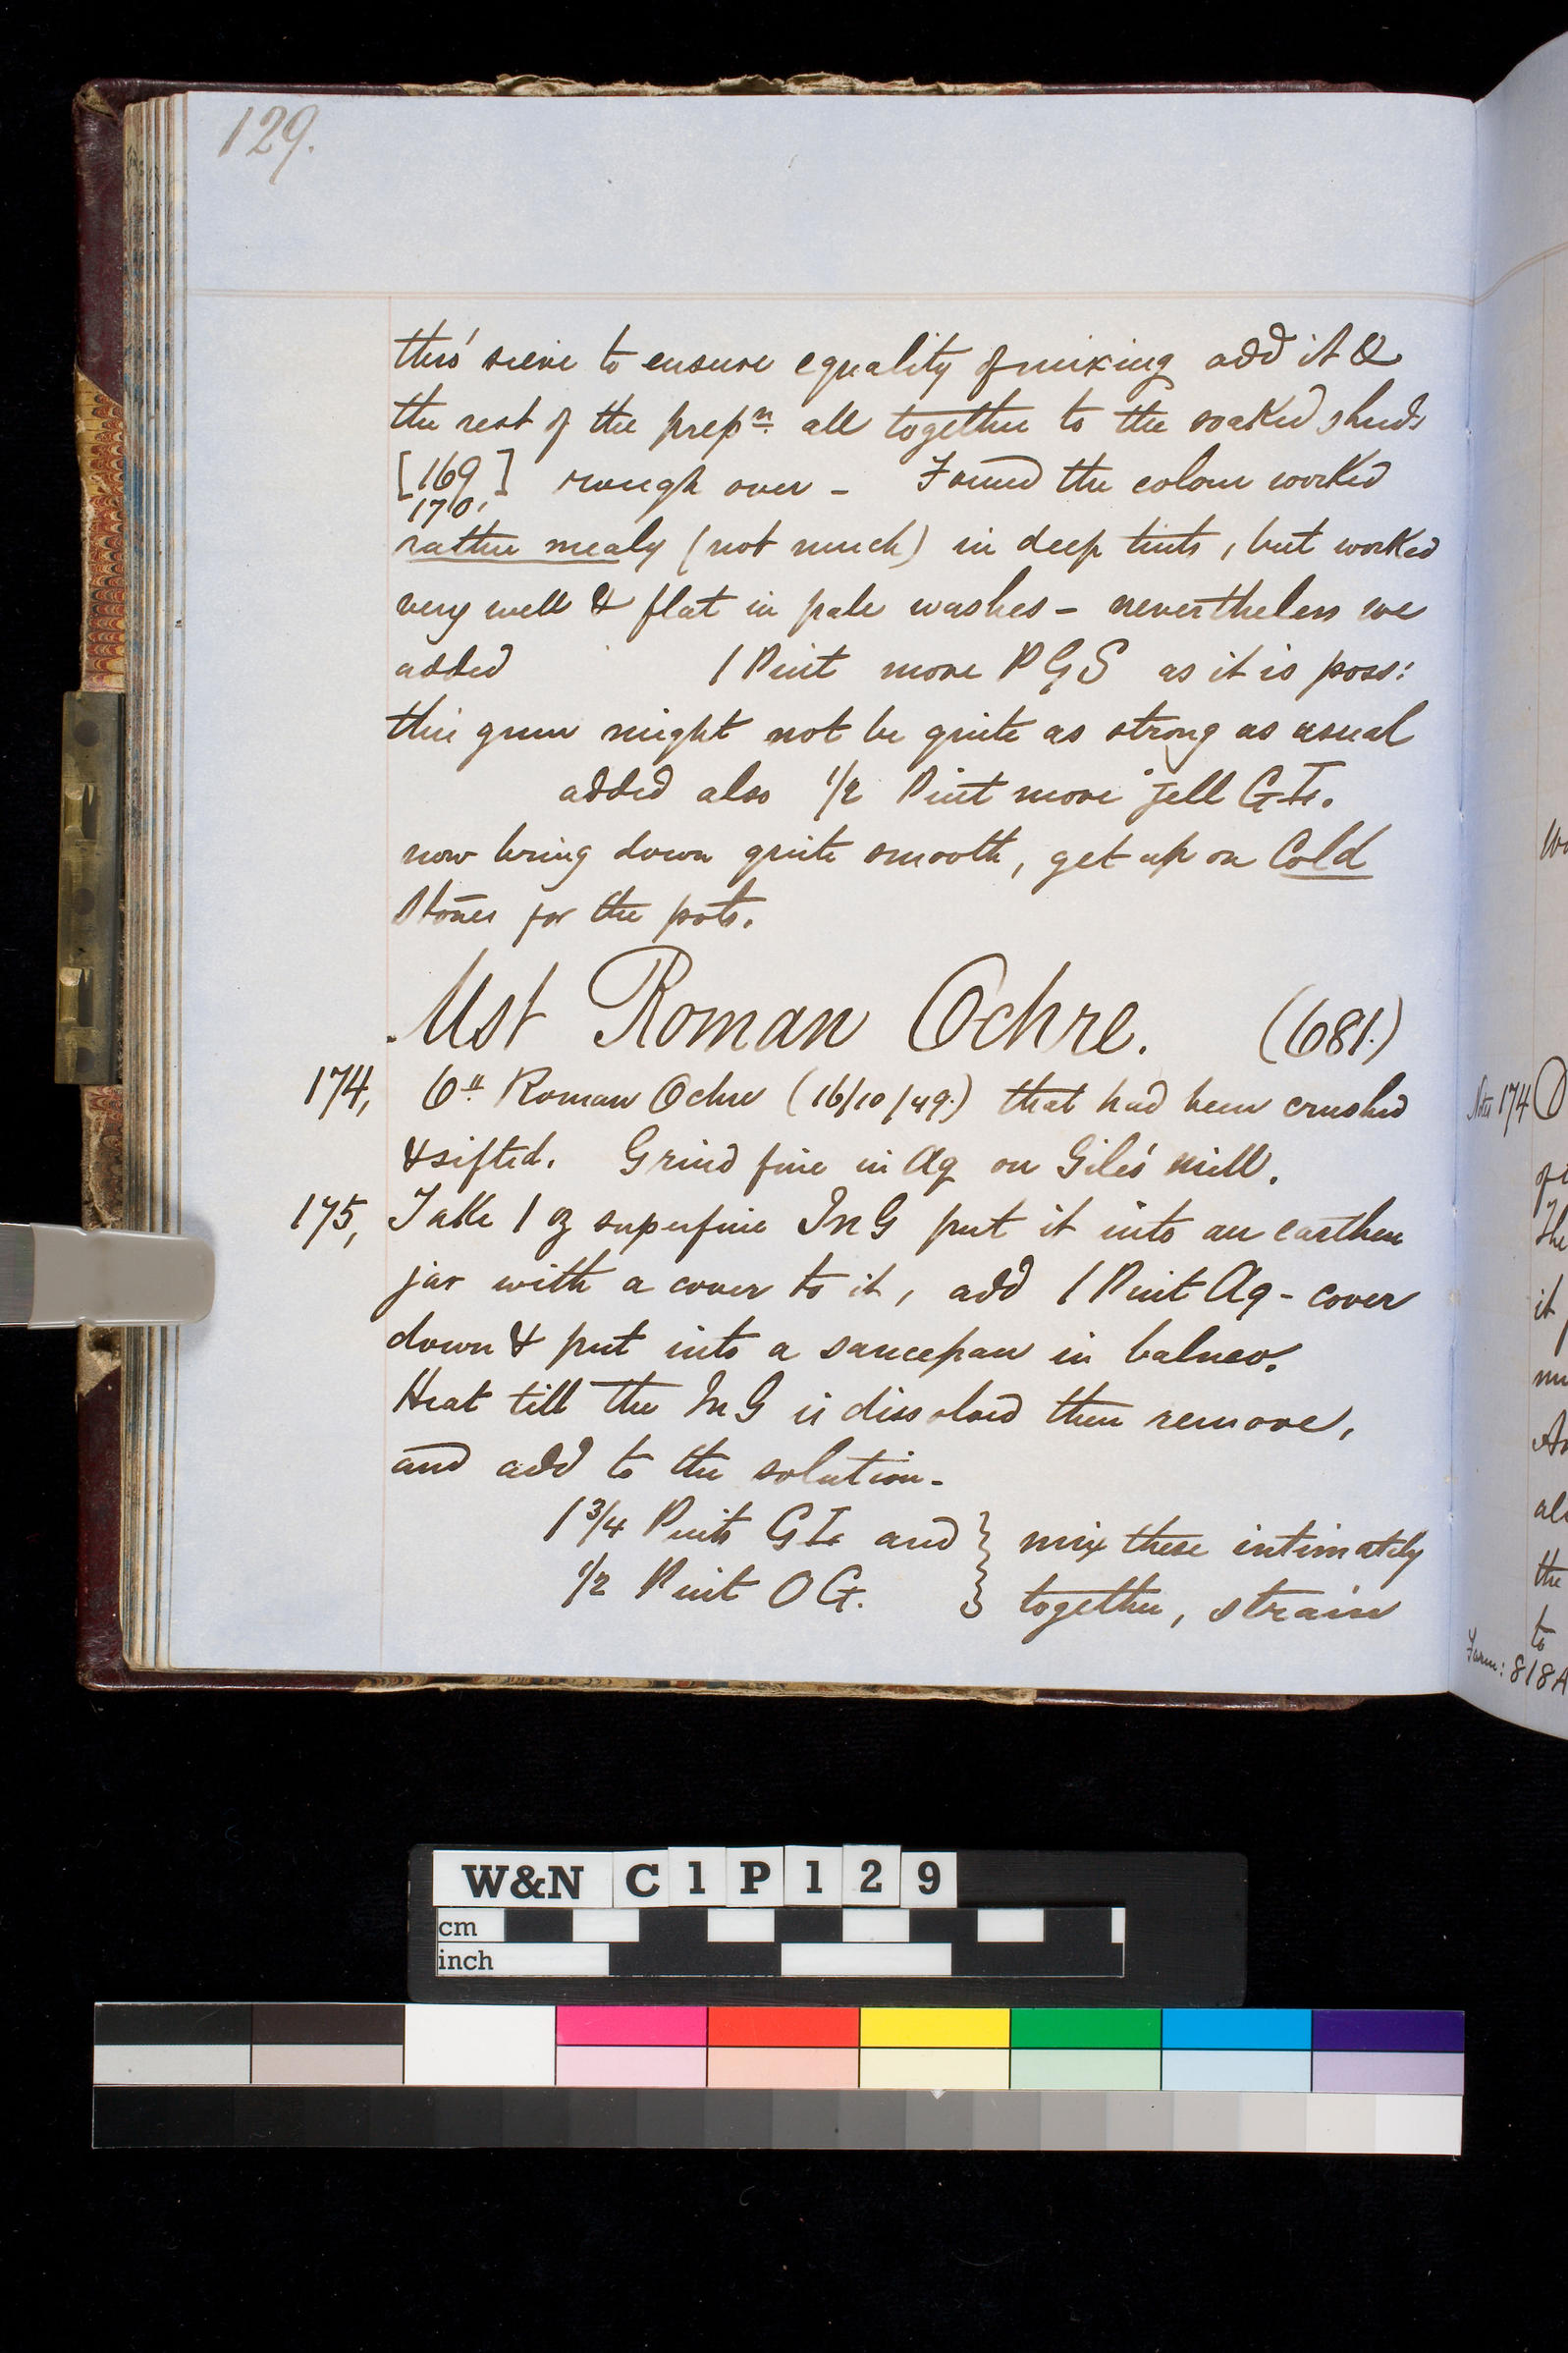 129.
thro' sieve to ensure equality of mixing add it &
the rest of the prepn. all together to the soaked shreds
[169] rough over – Found the colour worked
170,
rather mealy (not much) in deep tints, but worked
very well & flat in pale washes – nevertheless we
added 1 Pint more PGS as it is poss:
this gum might not be quite as strong as usual
added also 1/2 Pint more jell G
now bring down quite smooth, get up on Cold
Stones for the pots.
Mst Roman Ochre. (681.)
174, 6lb Roman Ochre (16/10/49.) that had been crushed
& sifted. Grind fine in Aq on Giles' mill.
175, Take 1 oz superfine InG put it into an earthen
jar with a cover to it, add 1 Pint Aq – cover
down & put into a saucepan in balneo.
Heat till the InG is dissolved then remove,
and add to the solution –
1 3/4 Pints G and } mix these intimately
1/2 Pint OG. } together, strain
174
it
the
to
818A
W&N C1P129
cm
inch